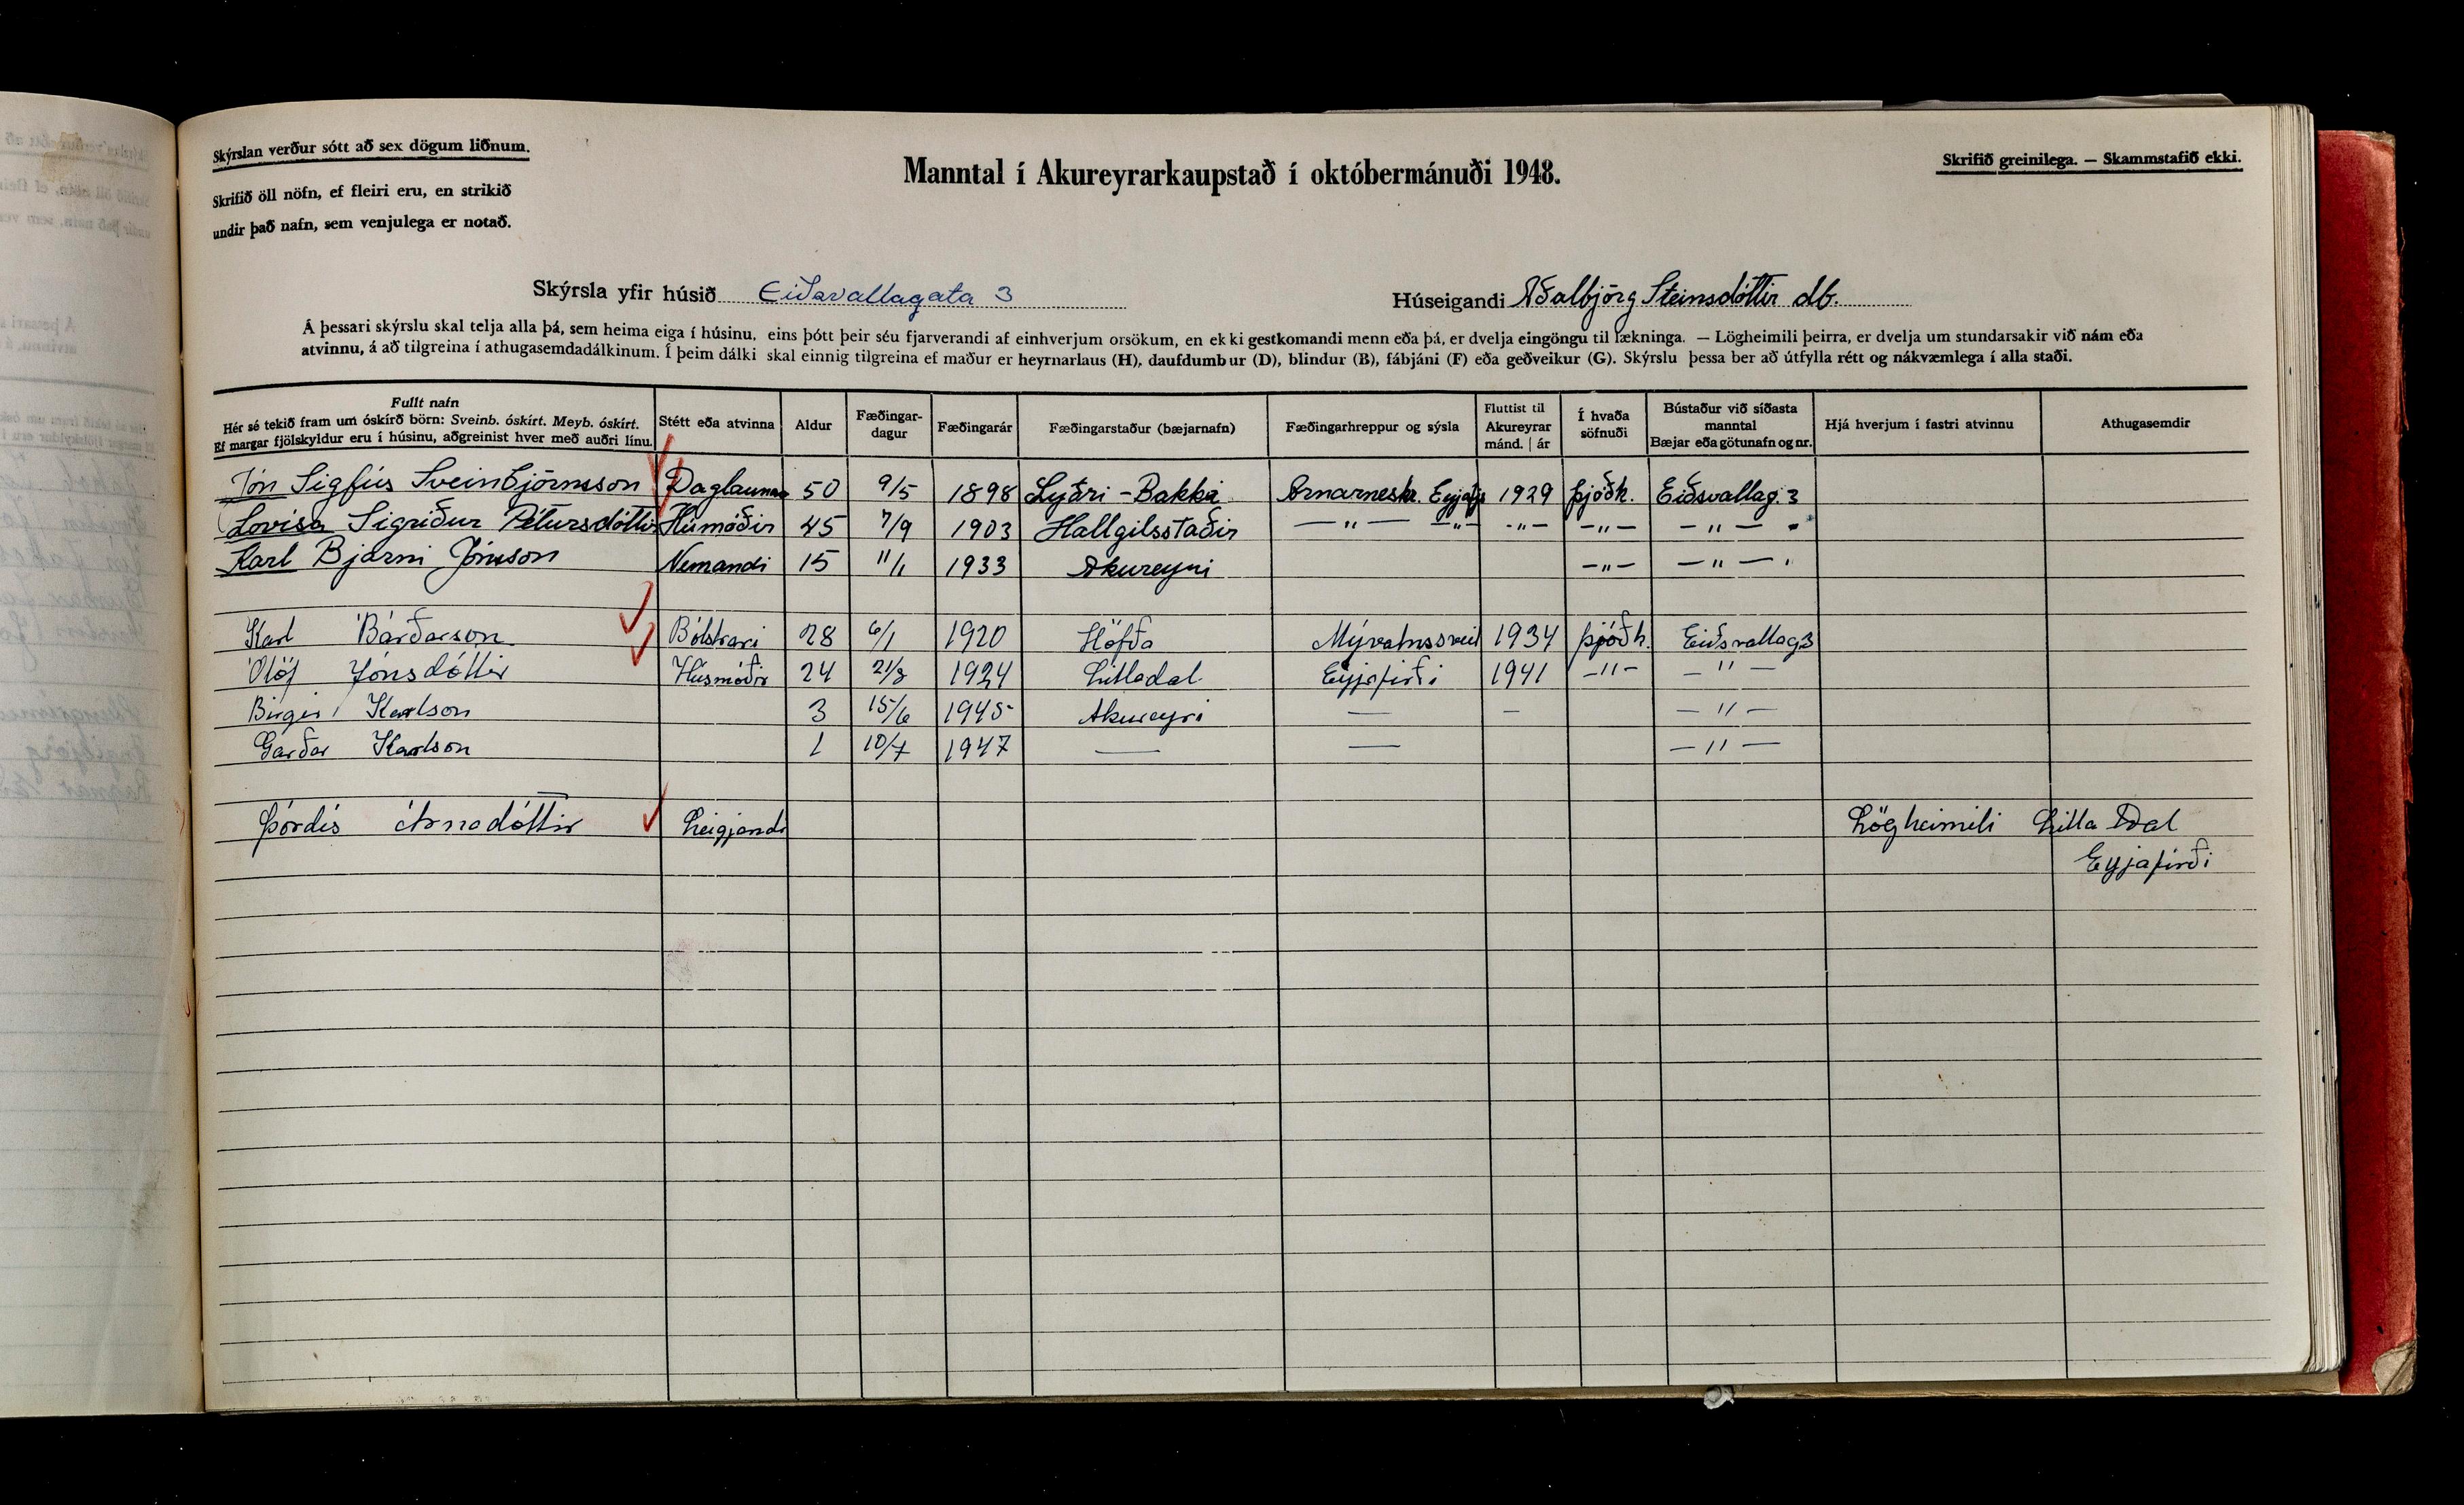 Skýrslan verður sótt að sex dögum liðnum.
Skrifið öll nöfn, ef fleiri eru, en strikið
undir það nafn, sem venjulega er notað.
Manntal í Akureyrarkaupstað í októbermánuði 1948.
Skrifið greinilega. — Skammstafið ekki.
Skýrsla yfir húsið Eiðsvallagata 3
Húseigandi Aðalbjörg Steinsdóttir db.
Á þessari skýrslu skal telja alla þá, sem heima eiga í húsinu, eins þótt þeir séu fjarverandi af einhverjum orsökum, en ekki gestkomandi menn eða þá, er dvelja eingöngu til lækninga. — Lögheimili þeirra, er dvelja um stundarsakir við nám eða
atvinnu, á að tilgreina í athugasemdadálkinum. Í þeim dálki skal einnig tilgreina ef maður er heyrnarlaus (H), daufdumbur (D), blindur (B), fábjáni (F) eða geðveikur (G). Skýrslu þessa ber að útfylla rétt og nákvæmlega í alla staði.
Fullt nafn
Hér sé tekið fram um óskírð börn: Sveinb. óskírt. Meyb. óskírt.
Ef margar fjölskyldur eru í húsinu, aðgreinist hver með auðri línu.
Stétt eða atvinna
Aldur
Fæðingar-
dagur
Fæðingarár
Fæðingarstaður (bæjarnafn)
Fæðingarhreppur og sýsla
Fluttist til
Akureyrar
mánd. | ár
Í hvaða
söfnuði
Bústaður við síðasta
manntal
Bæjar eða götunafn og nr.
Hjá hverjum í fastri atvinnu
Athugasemdir
Jón Sigfús Sveinbjörnsson Daglaunam 50 9/5 1898 Syðri-Bakki Arnarneshr. Eyjafj 1929 þjóðk. Eiðsvallag. 3
Lovísa Sigríður Pétursdóttir Húmóðir 45 7/9 1903 Hallgilsstaðir —"— —"— -"- —"— —"— "
Karl Bjarni Jónsson Nemandi 15 11/1 1933 Akureyri —"— —"— "
Karl Bárðarson Bólstrari 28 6/1 1920 Höfða Mývatnssveit 1934 þjóðk. Eiðsvallag 3
Ólöf Jónsdóttir Húsmóðir 24 21/3 1924 Litladal Eyjafirði 1941 —"— —"—
Birgir Karlson 3 15/6 1945 Akureyri — — —"—
Garðar Karlson 1 10/7 1947 — — —"—
Þórdís Árnadóttir Leigjandi Lögheimili Litla Dal
Eyjafirði